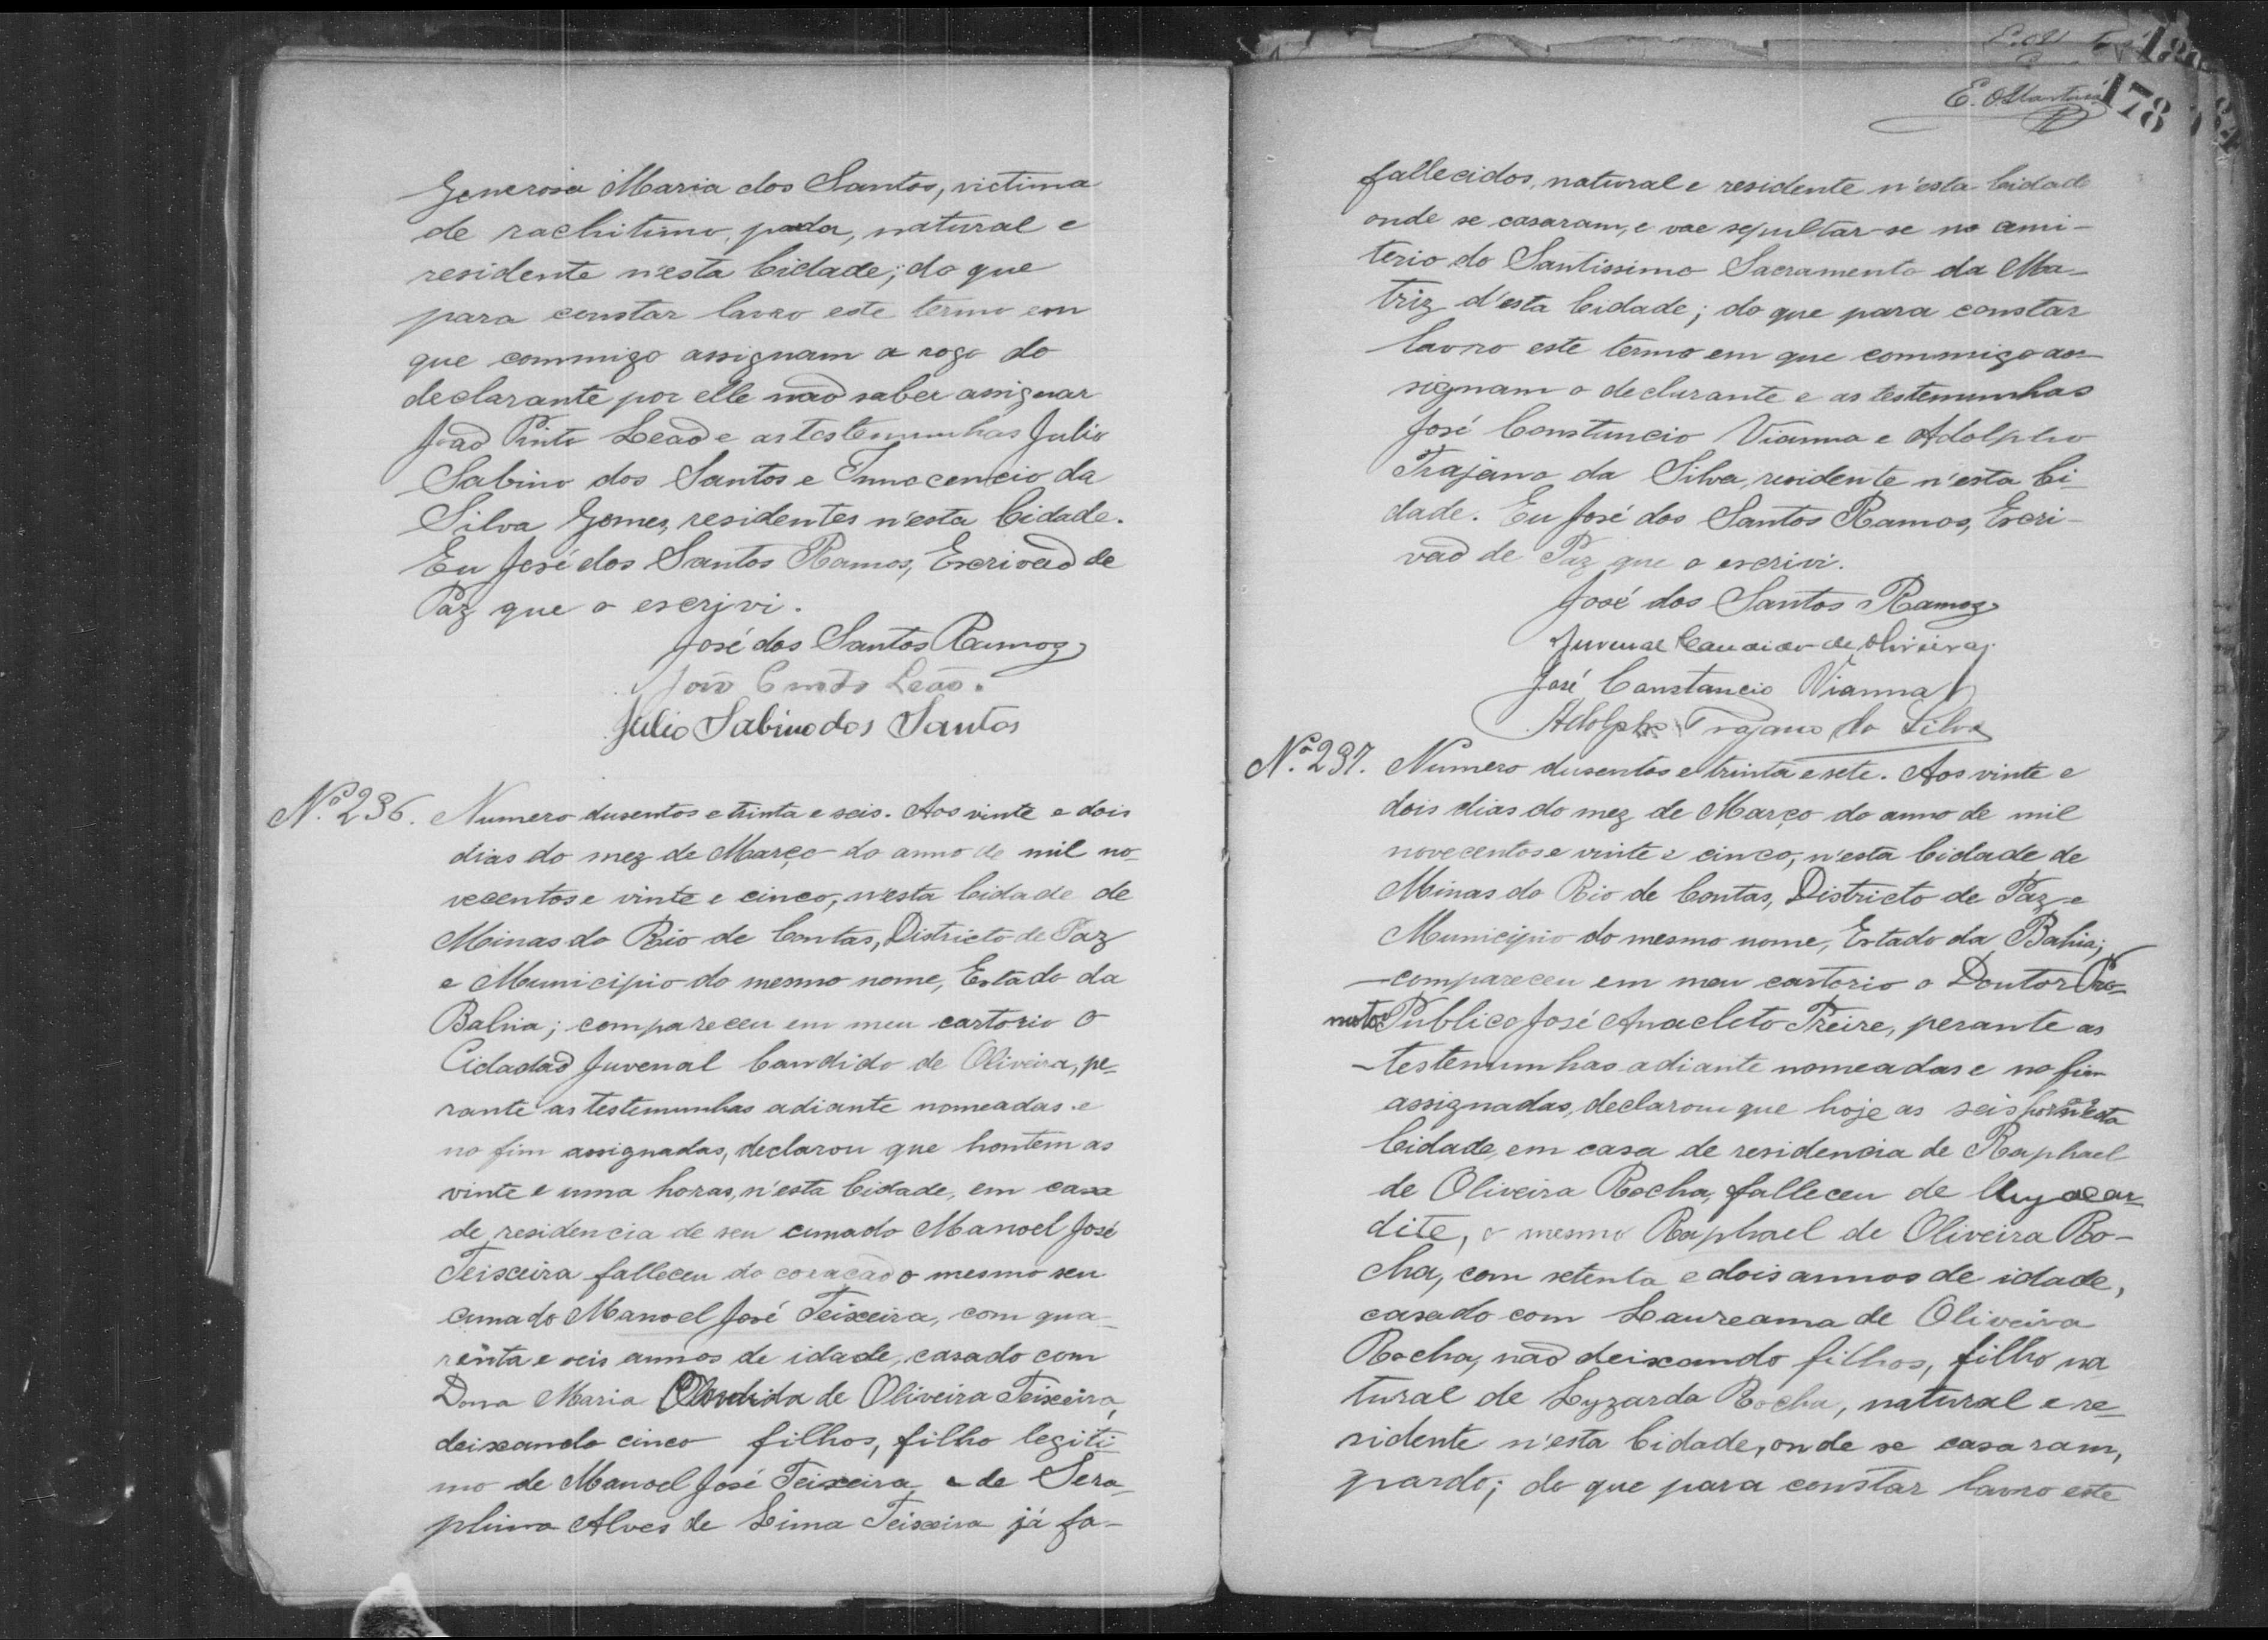 Generosa Maria dos Santos, victima
de rachitimo, parda, natural e
residente n'esta Cidade; do que
para constar lavro este termo em
que commigo assignam a rogo do
declarante por elle não saber assignar
João Pinto Leão e as testemunhas Julio
Sabino dos Santos e Innocencio da
Silva Gomes, residentes n'esta Cidade.
Eu José dos Santos Ramos, Escrivão de
Paz que o escrivi.
José dos Santos Ramos
João Pinto Leão.
Julio Sabino dos Santos
Nº 236. Numero dusentos e trinta e seis. Aos vinte e dois
dias do mez de Março do anno de mil no-
vecentos e vinte e cinco, n'esta Cidade de
Minas do Rio de Contas, Districto de Paz
e Municipio do mesmo nome, Estado da
Bahia; compareceu em meu cartorio o
Cidadão Juvenal Candido de Oliveira, pe-
rante as testemunhas adiante nomeadas e
no fim assignadas, declarou que hontem as
vinte e uma horas, n'esta Cidade, em casa
de residencia de seu cunado Manoel José
Teixeira falleceu do coração o mesmo seu
cunado Manoel José Teixeira, com qua-
renta e seis annos de idade, casado com
Dona Maria Candida de Oliveira Teixeira,
deixando cinco filhos, filho legiti-
mo de Manoel José Teixeira e de Sera-
phina Alves de Lima Teixeira já fa-
178
fallecidos, natural e residente n'esta Cidade
onde se casaram, e vae sepultar-se no cimi-
terio do Santissimo Sacramento da Ma-
triz d'esta Cidade; do que para constar
lavro este termo em que commigo as-
signam o declarante e as testemunhas
José Constancio Vianna e Adolpho
Trajano da Silva, residente n'esta Ci-
dade. Eu José dos Santos Ramos, Escri-
vão de Paz que o escrivi.
José dos Santos Ramos
Juvenal Candido de Oliveira
José Constancio Vianna
Adolpho Trajano da Silva
Nº 237. Numero dusentos e trinta e sete. Aos vinte e
dois dias do mez de Março do anno de mil
novecentos e vinte e cinco, n'esta Cidade de
Minas do Rio de Contas, Districto de Paz e
Municipio do mesmo nome, Estado da Bahia;
compareceu em meu cartorio o Doutor Pro-
motor Publico José Anacleto Freire, perante as
testemunhas adiante nomeadas e no fim
assignadas, declarou que hoje as seis horas n'esta
Cidade, em casa de residencia de Raphael
de Oliveira Rocha, falleceu de Myocar-
dite, o mesmo Raphael de Oliveira Ro-
cha, com setenta e dois annos de idade,
casado com Laureama de Oliveira
Rocha, não deixando filhos, filho na
tural de Lyzarda Rocha, natural e re-
sidente n'esta Cidade, onde se casaram,
pardo; do que para constar lavro este